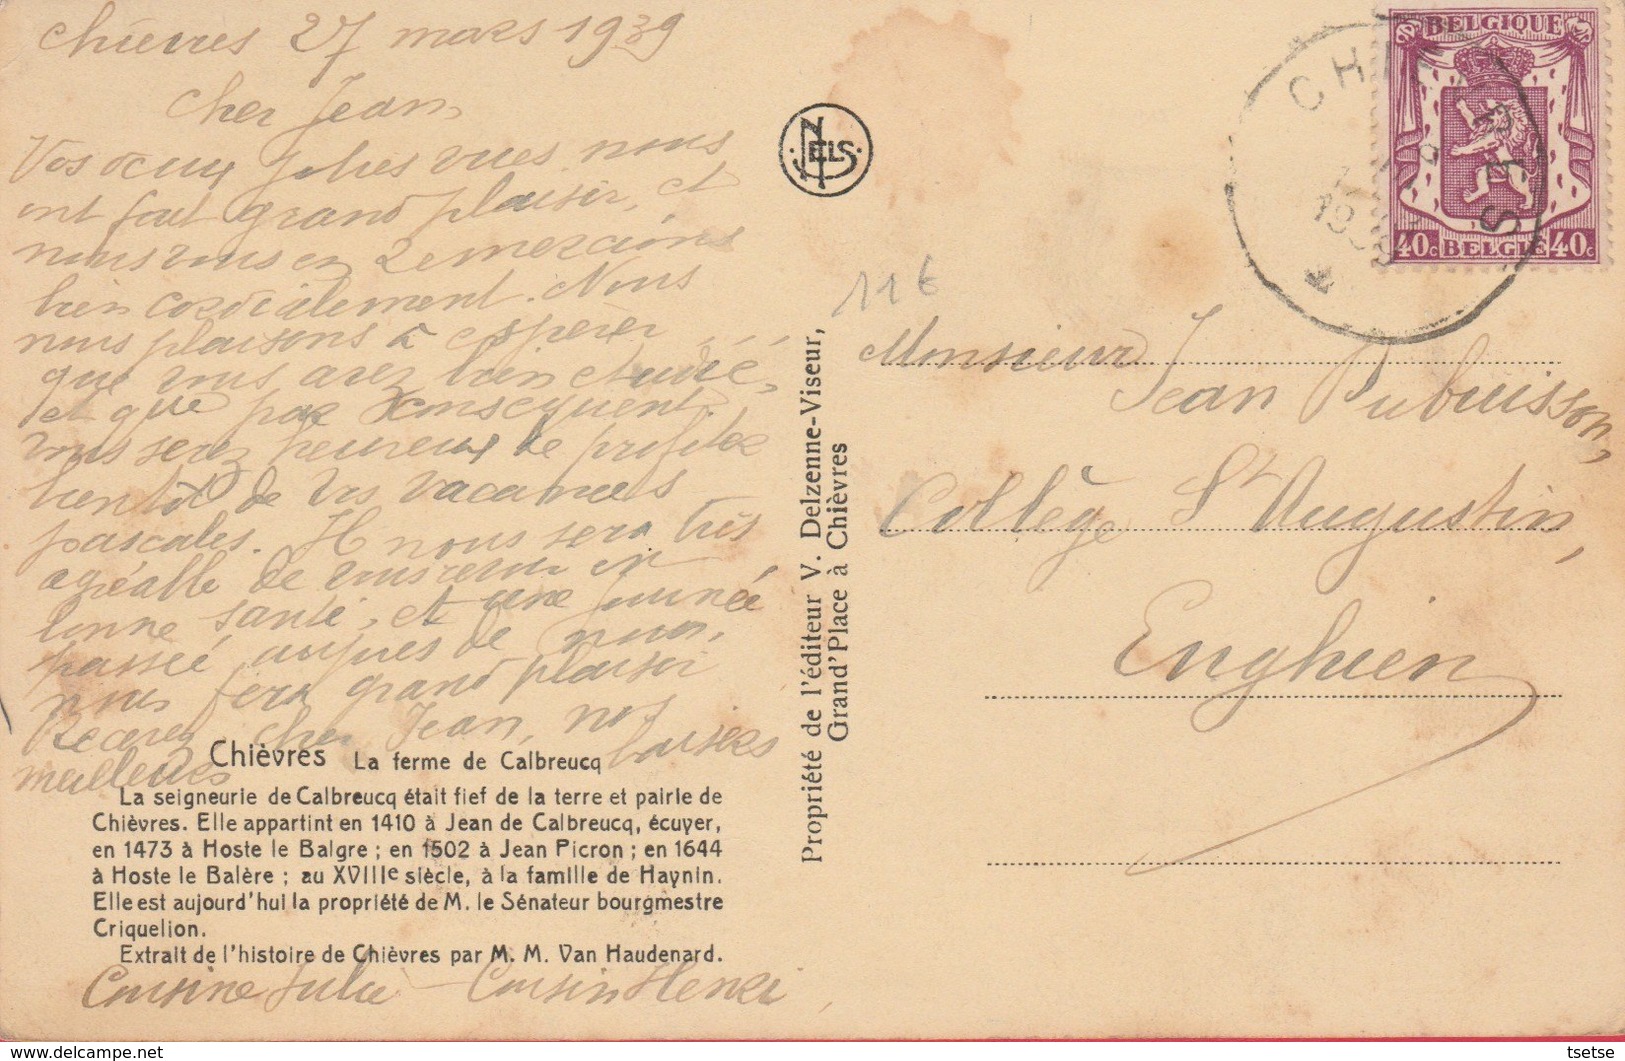 Chièvres 27 mars 1939
Cher Jean,
Vos deux jolies vues nous
ont fait grand plaisir, et
nous vous en remercions
bien cordialement. Nous
nous plaisons à espérer
que vous avez bien étudié,
et que par conséquent
vous serez heureux de profiter
bientôt de vos vacances
pascales. Il nous sera très
agréable de vous revoir en
bonne santé, et une journée
passée auprès de nous,
nous fera grand plaisir
Recevez, cher Jean, nos
meilleurs baisers
Chièvres La ferme de Calbreucq
La seigneurie de Calbreucq était fief de la terre et pairie de
Chièvres. Elle appartint en 1410 à Jean de Calbreucq, écuyer,
en 1473 à Hoste le Balgre ; en 1502 à Jean Picron ; en 1644
à Hoste le Balère ; au XVIIIe siècle, à la famille de Haynin.
Elle est aujourd'hui la propriété de M. le Sénateur bourgmestre
Criquelion.
Extrait de l'histoire de Chièvres par M. M. Van Haudenard.
Cousine Julie - Cousin Henri
NELS
Propriété de l'éditeur V. Delzenne-Viseur,
Grand'Place à Chièvres
11€
BELGIQUE
40c BELGIË 40c
CHIEVRES
Monsieur Jean Dubuisson,
Collège St Augustin,
Enghien
tsetse